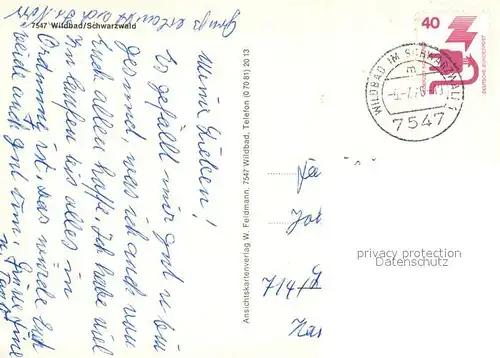 7547 Wildbad/Schwarzwald
Meine Lieben!
Es gefällt mir gut u bin
gesund, was ich auch von
Euch allen hoffe. Ich habe viel
zu laufen bis alles in
Ordnung ist, das würde Euch
beide auch gut tun.
Ansichtskartenverlag W. Feldmann, 7547 Wildbad, Telefon (0 70 81) 20 13
40
DEUTSCHE BUNDESPOST
WILDBAD IM SCHWARZWALD
m
7547
privacy protection
Datenschutz
714/